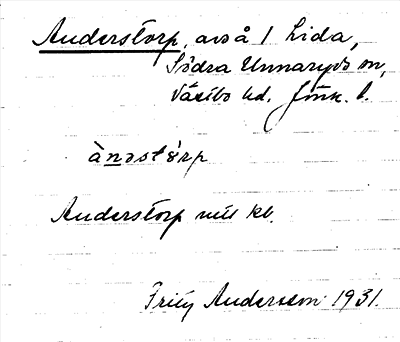 Anderstorp, avs å 1 Lida,
Södra Unnaryds sn,
Västbo hd. Jönk. l.
ànɔst&rp
Anderstorp mtl kb.
Frity Anderson 1931.